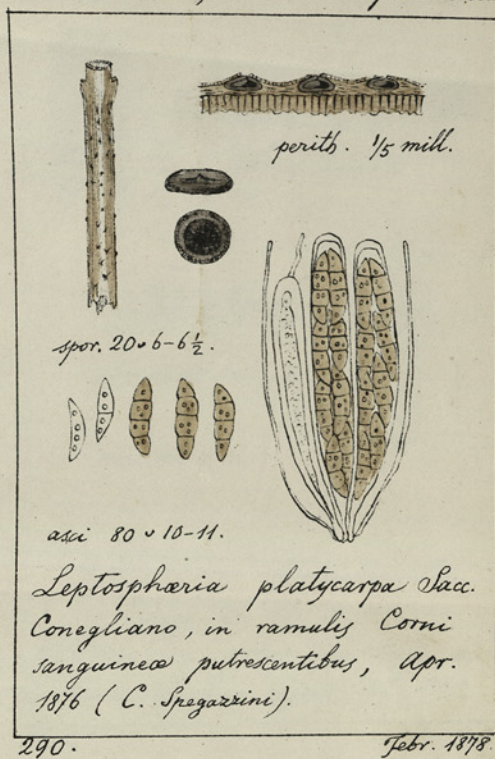 perith. 1/5 mill.
spor. 20 ᴗ 6-6 ½.
asci 80 ᴗ 10-11.
Leptosphæria platycarpa Sacc.
Conegliano, in ramulis Corni
sanguineæ putrescentibus, Apr.
1876 (C. Spegazzini).
290.
Febr. 1878.